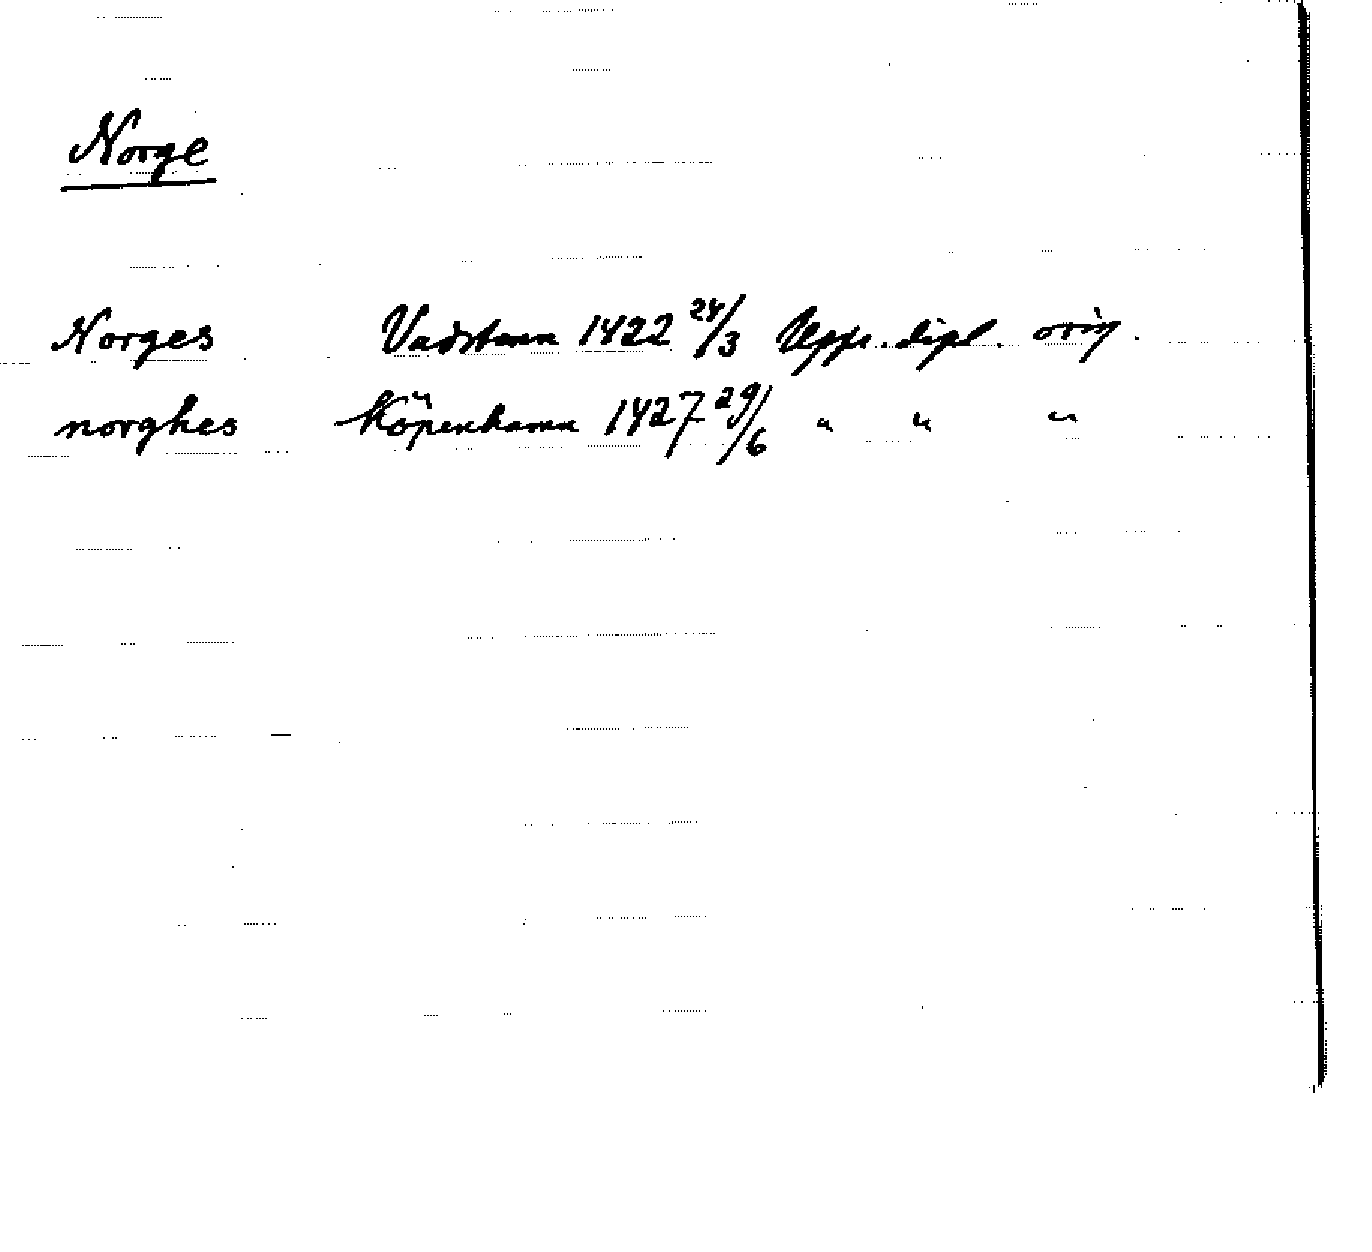 Norge
Norges Vadstena 1422 24/3 Upps. dipl. orig.
norghes Köpenhamn 1427 29/6 " " "